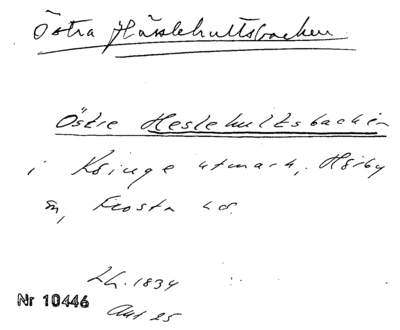 Östra Hässlehultsbacken
Östre Heslehultsbacken
i Ksinge utmark, Hörby
sn, Frosta hd.
Lh. 1834
Akt 25
Nr 10446